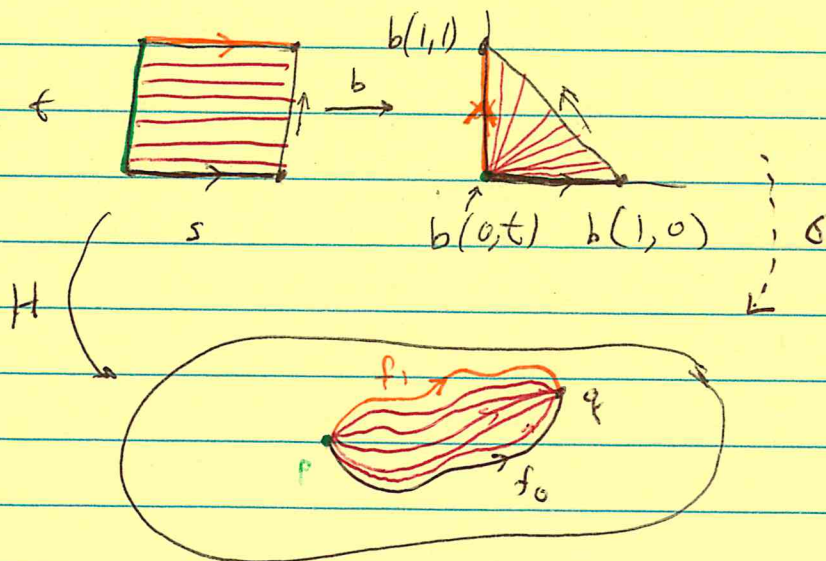 b(1,1)
t
b
s
b(0,t) b(1,0)
σ
H
f₁
q
p
f₀